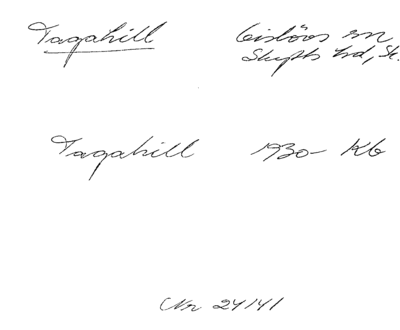 Tagahill Gislövs sn
Skytts hd, Sk.
Tagahill 1930- Kb
Nr 24141